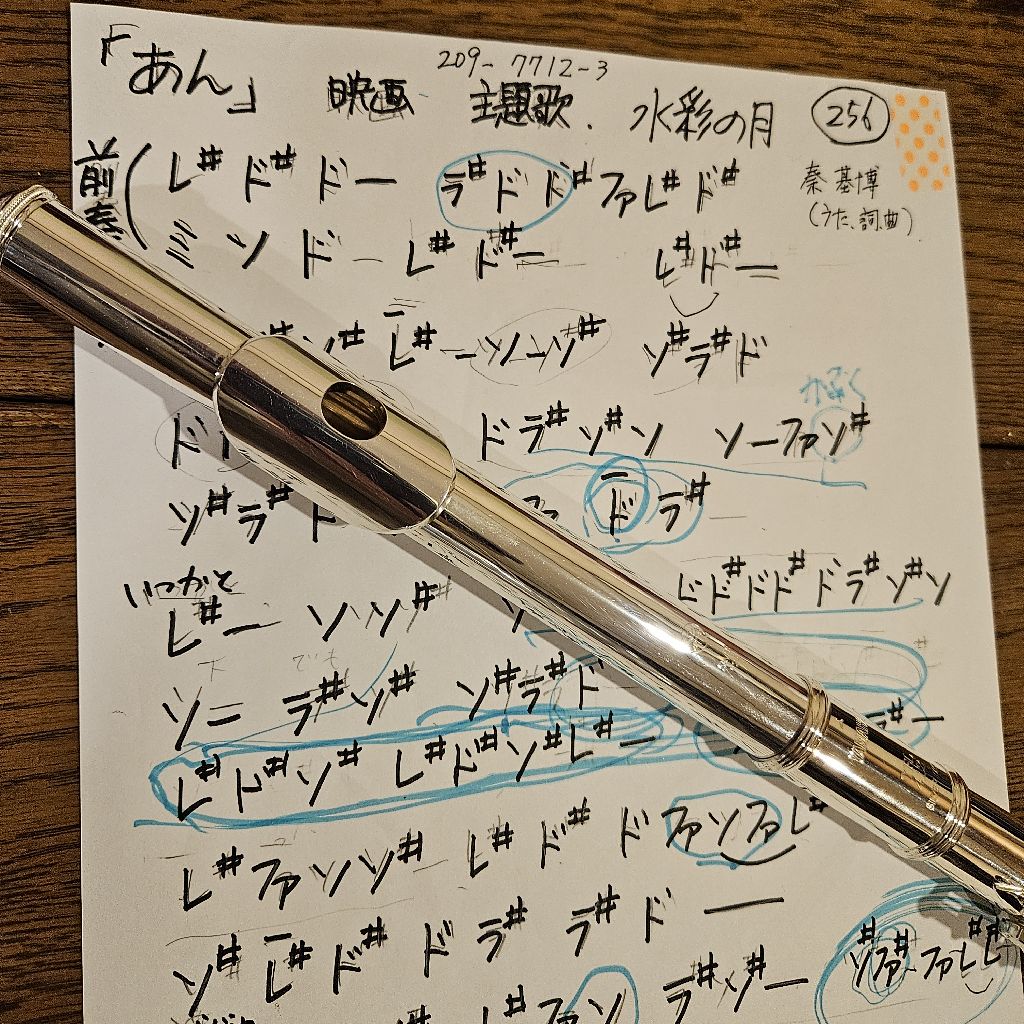 209-7712-3
「あん」 映画 主題歌. 水彩の月 256
前奏 ( レ# ド# ドー ラ# ド ド# ファ レ# ド#
秦 基博
(うた、詞、曲)
ミ ソ ドー レ# ド#ー レ# ド#ー
レ# ーソーソ# ソ# ラ# ド
ド ド ラ# ソ# ソ ソーファソ#
ソ# ラ# ド ド ラ#
いつかと
レ#ー ソソソ# ド# ド ド# ド ラ# ソ# ソ
でも
ソー ラ# ソ# ソ# ラ# ド
レ# ド# ソ# レ# ド# ソ# レ#ー ラ#ー
レ# ファ ソ ソ# レ# ド# ド ファ ソ ファ レ#
ソ# レ# ド# ド ラ# ラ# ド ー
ファ ソ ラ# ソ#ー ソ# ファ# ファ レ レ#